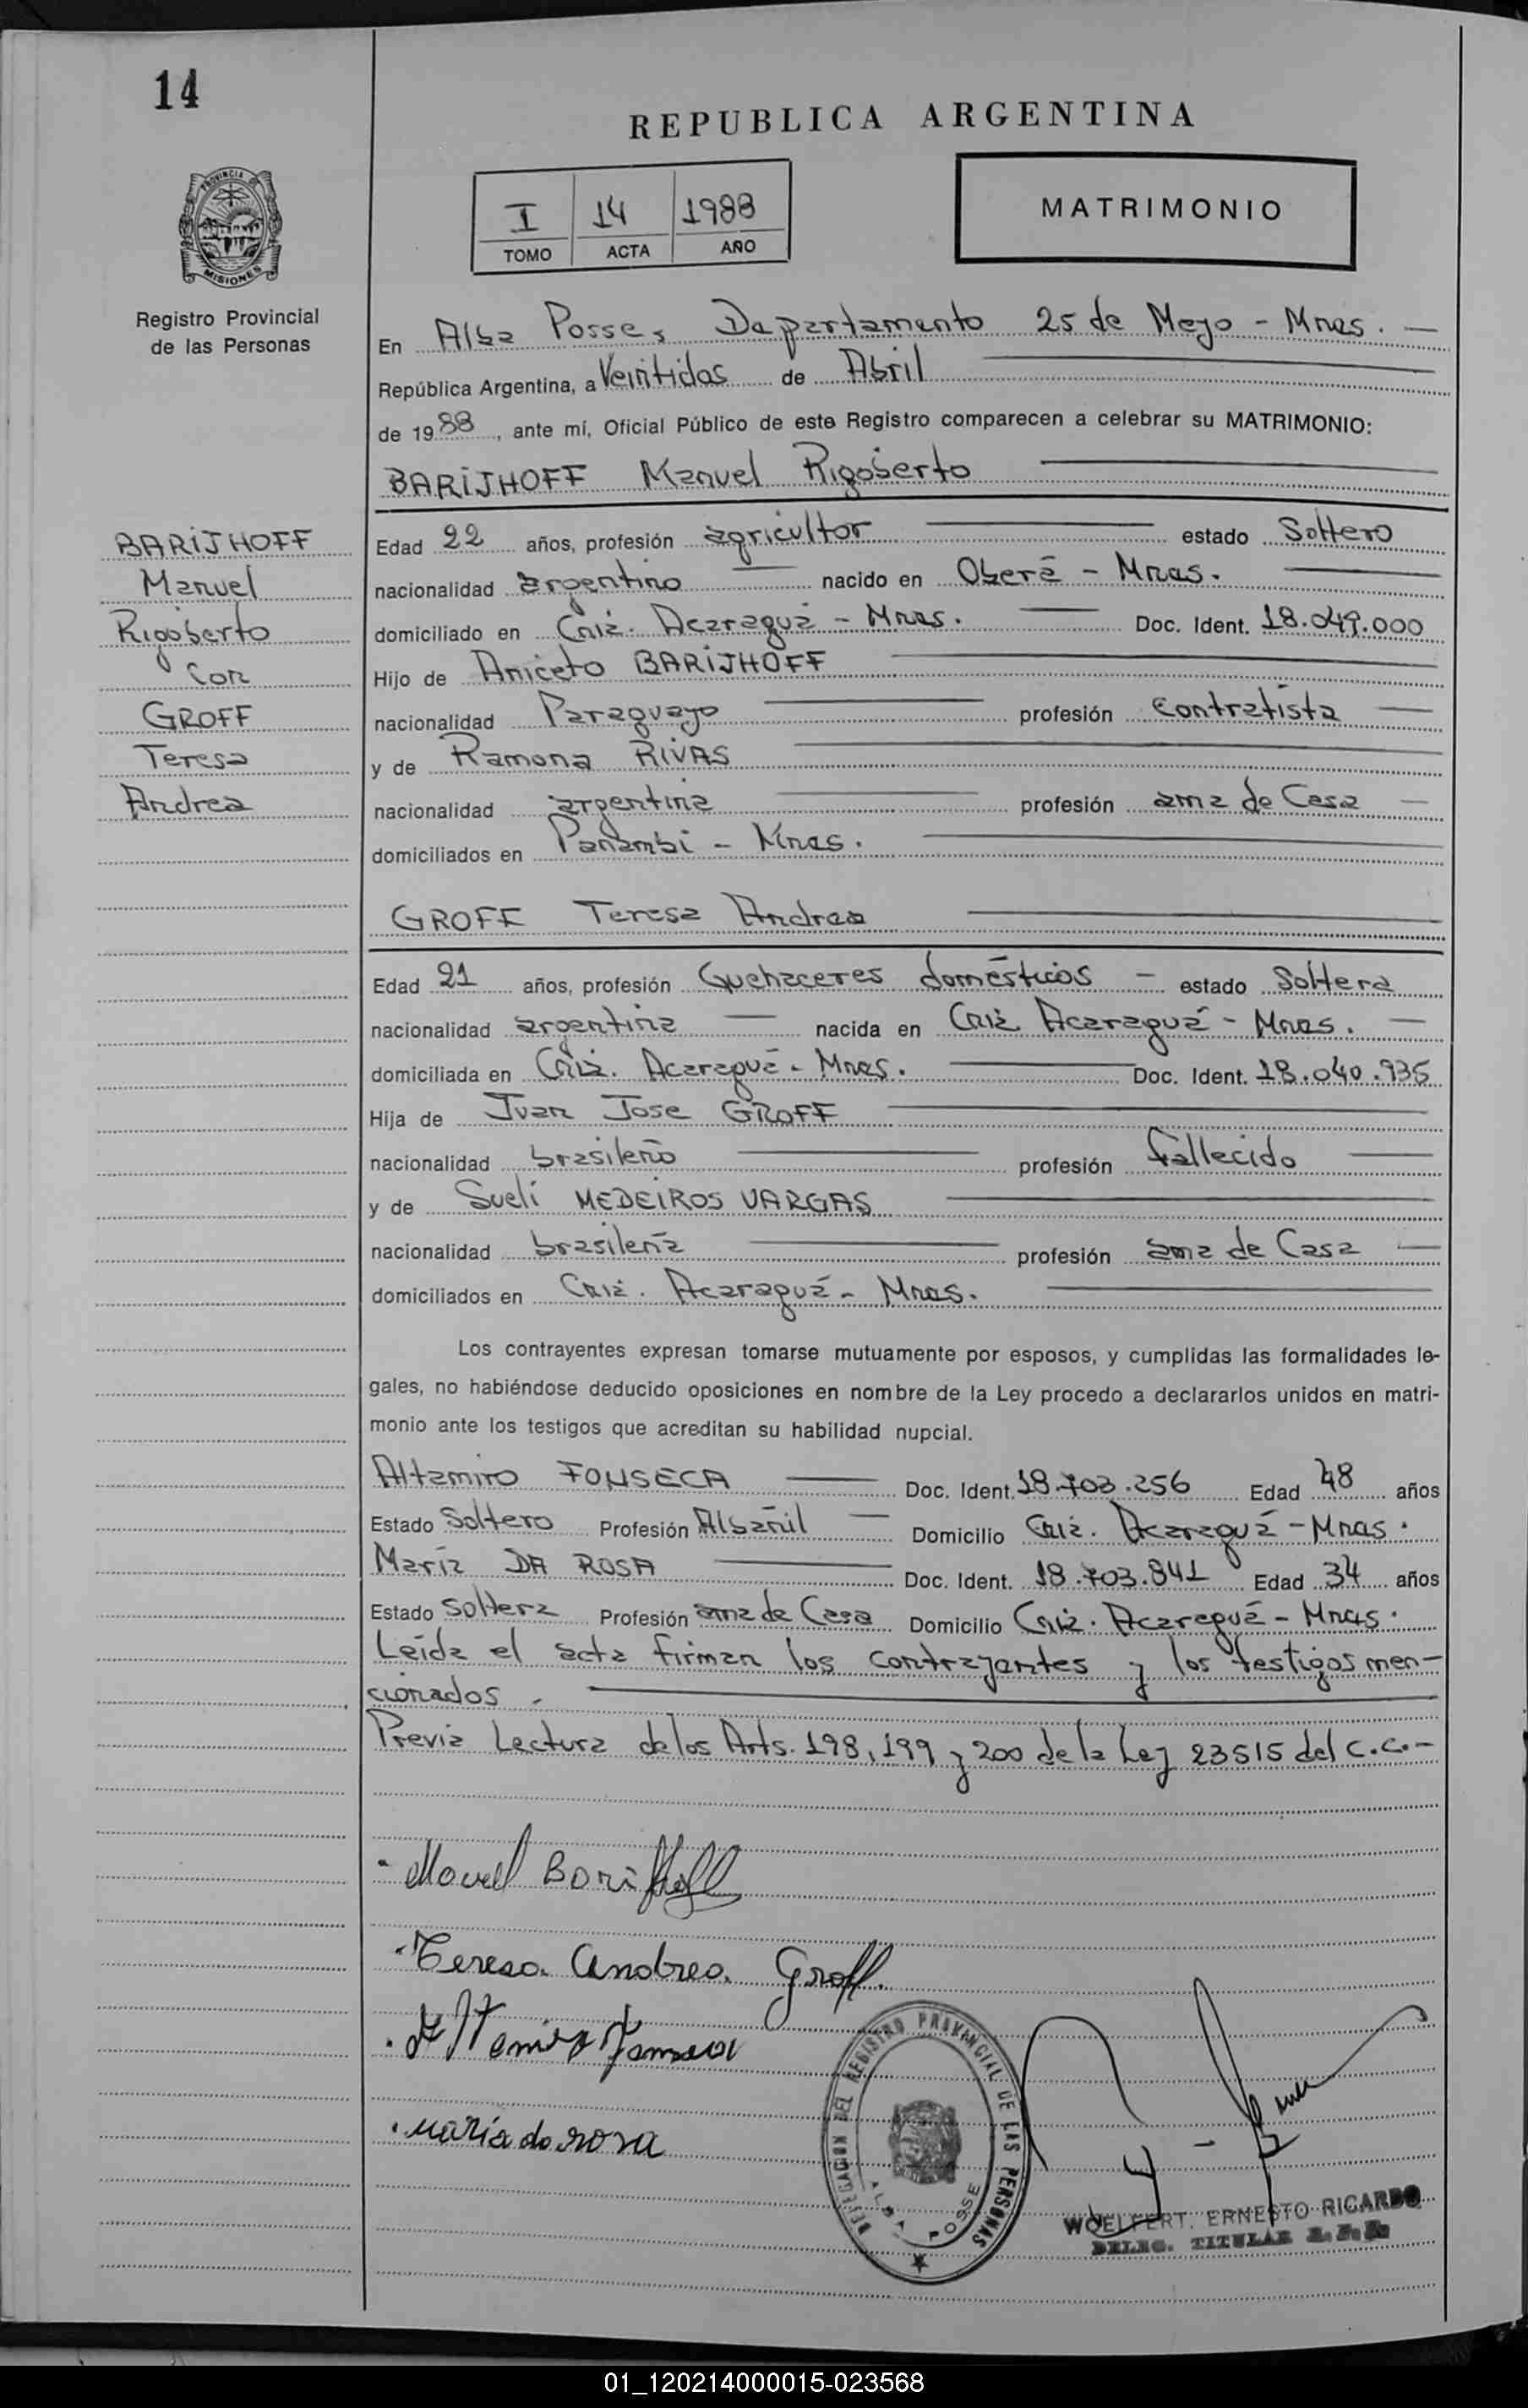 14
REPUBLICA ARGENTINA
I 14 1988
TOMO ACTA AÑO
MATRIMONIO
PROVINCIA DE
MISIONES
Registro Provincial
de las Personas
En Alba Posse, Departamento 25 de Mayo - Mnes. —
República Argentina, a Veintidos de Abril
de 1988, ante mí, Oficial Público de este Registro comparecen a celebrar su MATRIMONIO:
BARIJHOFF Manuel Rigoberto
BARIJHOFF
Manuel
Rigoberto
Con
GROFF
Teresa
Andrea
Edad 22 años, profesión agricultor estado Soltero
nacionalidad argentino nacido en Oberá - Mnes.
domiciliado en Cnia. Acaraguá - Mnes. Doc. Ident. 18.049.000
Hijo de Aniceto BARIJHOFF
nacionalidad Paraguayo profesión Contratista
y de Ramona RIVAS
nacionalidad argentina profesión ama de Casa
domiciliados en Panambi - Mnes.
GROFF Teresa Andrea
Edad 21 años, profesión Quehaceres domésticos — estado Soltera
nacionalidad argentina nacida en Cnia Acaraguá - Mnes.
domiciliada en Cnia. Acaraguá - Mnes. Doc. Ident. 18.040.935
Hija de Juan Jose GROFF
nacionalidad brasileño profesión fallecido
y de Sueli MEDEIROS VARGAS
nacionalidad brasileña profesión ama de Casa
domiciliados en Cnia. Acaraguá - Mnes.
Los contrayentes expresan tomarse mutuamente por esposos, y cumplidas las formalidades le-
gales, no habiéndose deducido oposiciones en nombre de la Ley procedo a declararlos unidos en matri-
monio ante los testigos que acreditan su habilidad nupcial.
Altamiro FONSECA Doc. Ident. 18.703.256 Edad 48 años
Estado Soltero Profesión Albañil Domicilio Cnia. Acaraguá - Mnes.
María DA ROSA Doc. Ident. 18.703.841 Edad 34 años
Estado Soltera Profesión ama de Casa Domicilio Cnia. Acaraguá - Mnes.
Leída el acta firman los contrayentes y los testigos men-
cionados.
Previa Lectura de los Arts. 198, 199 y 200 de la Ley 23515 del C.C.-
Manuel Barijhoff
Teresa Andrea Groff.
Altemiro Fonseca
Maria da rosa
DELEGACION DEL REGISTRO PROVINCIAL DE LAS PERSONAS
ALBA POSSE
WOELFERT. ERNESTO RICARDO
DELEG. TITULAR
01_120214000015-023568